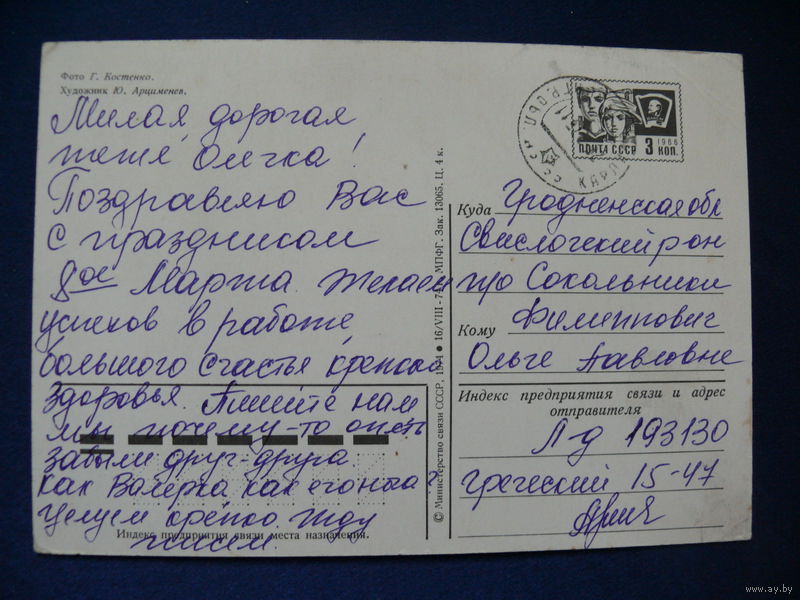 Фото Г. Костенко.
Художник Ю. Арцименев.
Милая, дорогая
тетя Олечка!
Поздравляю Вас
с праздником
8ое Марта. Желаем
успехов в работе,
большого счастья крепкого
здоровья. Пишите нам
мы почему-то опять
забыли друг-друга.
Как Валерка как его
Целуем крепко. Жду
писем.
Индекс предприятия связи места назначения.
© Министерство связи СССР, 1974 ● 16/VIII - 74. МПФГ. Зак. 13065. Ц. 4 к.
ПОЧТА СССР 3 КОП. 1966
Куда Гродненская обл
Свислочский р-он
п/о Сокольники
Кому Филиппович
Ольге Павловне
Индекс предприятия связи и адрес
отправителя
Л-д 193130
Греческий 15-47